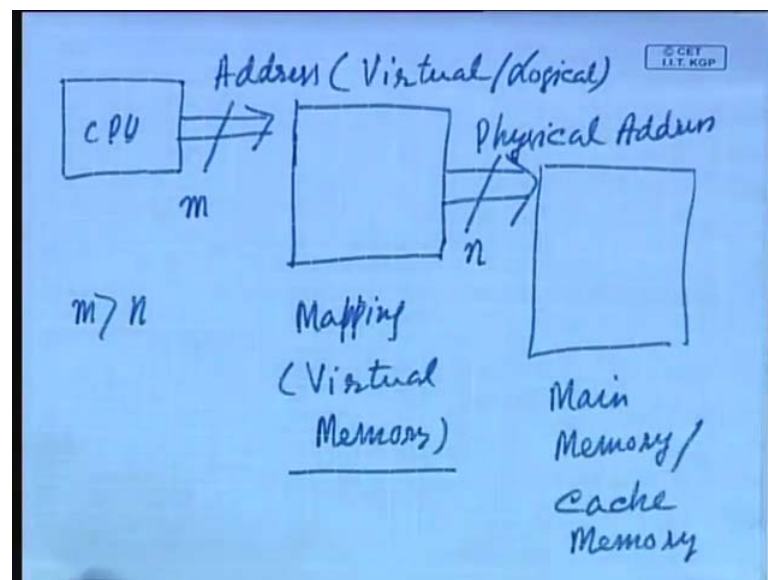 © CET
I.I.T. KGP
Address (Virtual/Logical)
CPU
Physical Address
m
n
m > n
Mapping
(Virtual
Memory)
Main
Memory/
Cache
Memory